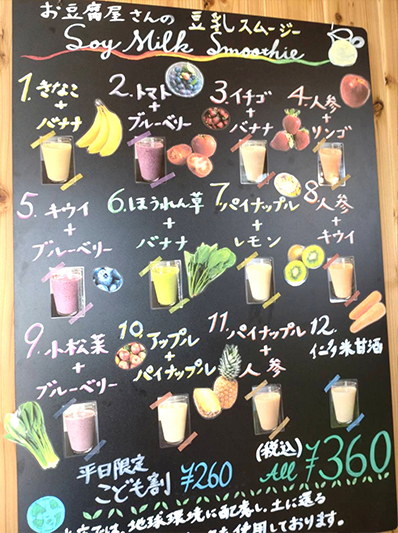 お豆腐屋さんの 豆乳スムージー
Soy Milk Smoothie
1. きなこ
+
バナナ
2. トマト
+
ブルーベリー
3. イチゴ
+
バナナ
4. 人参
+
リンゴ
5. キウイ
+
ブルーベリー
6. ほうれん草
+
バナナ
7. パイナップル
+
レモン
8. 人参
+
キウイ
9. 小松菜
+
ブルーベリー
10. アップル
+
パイナップル
11. パイナップル
+
人参
12.
米甘酒
平日限定
こども割 ¥260
(税込)
All ¥360
地球環境に配慮し、土に還る
使用しております。